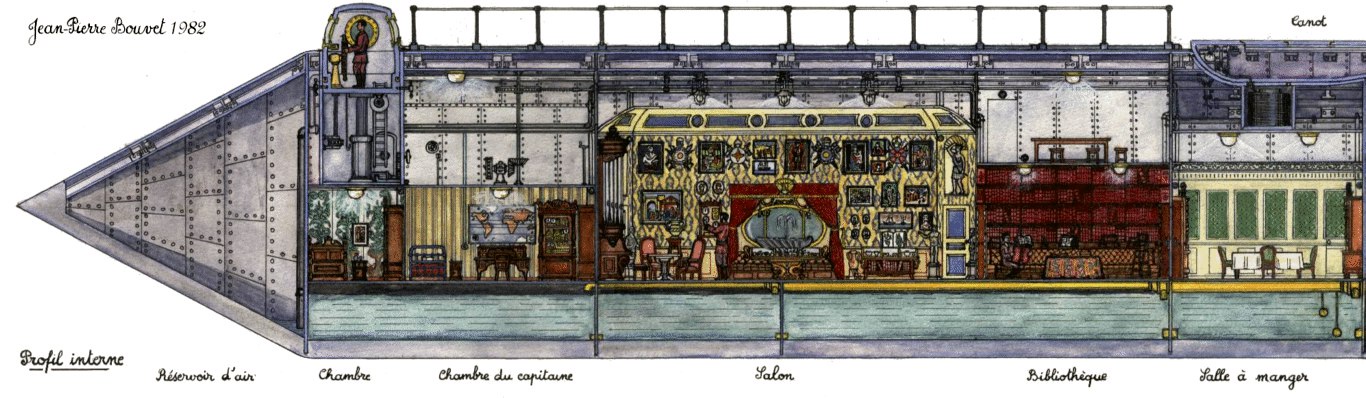 Jean-Pierre Bouvet 1982
Canot
Profil interne
Réservoir d'air
Chambre
Chambre du capitaine
Salon
Bibliothèque
Salle à manger